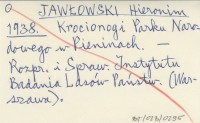 JAWŁOWSKI Hieronim
1938. Krocionogi Parku Naro-
dowego w Pieninach. —
Rozpr. i Spraw. Instytutu
Badania Lasów Państw. (War-
szawa).